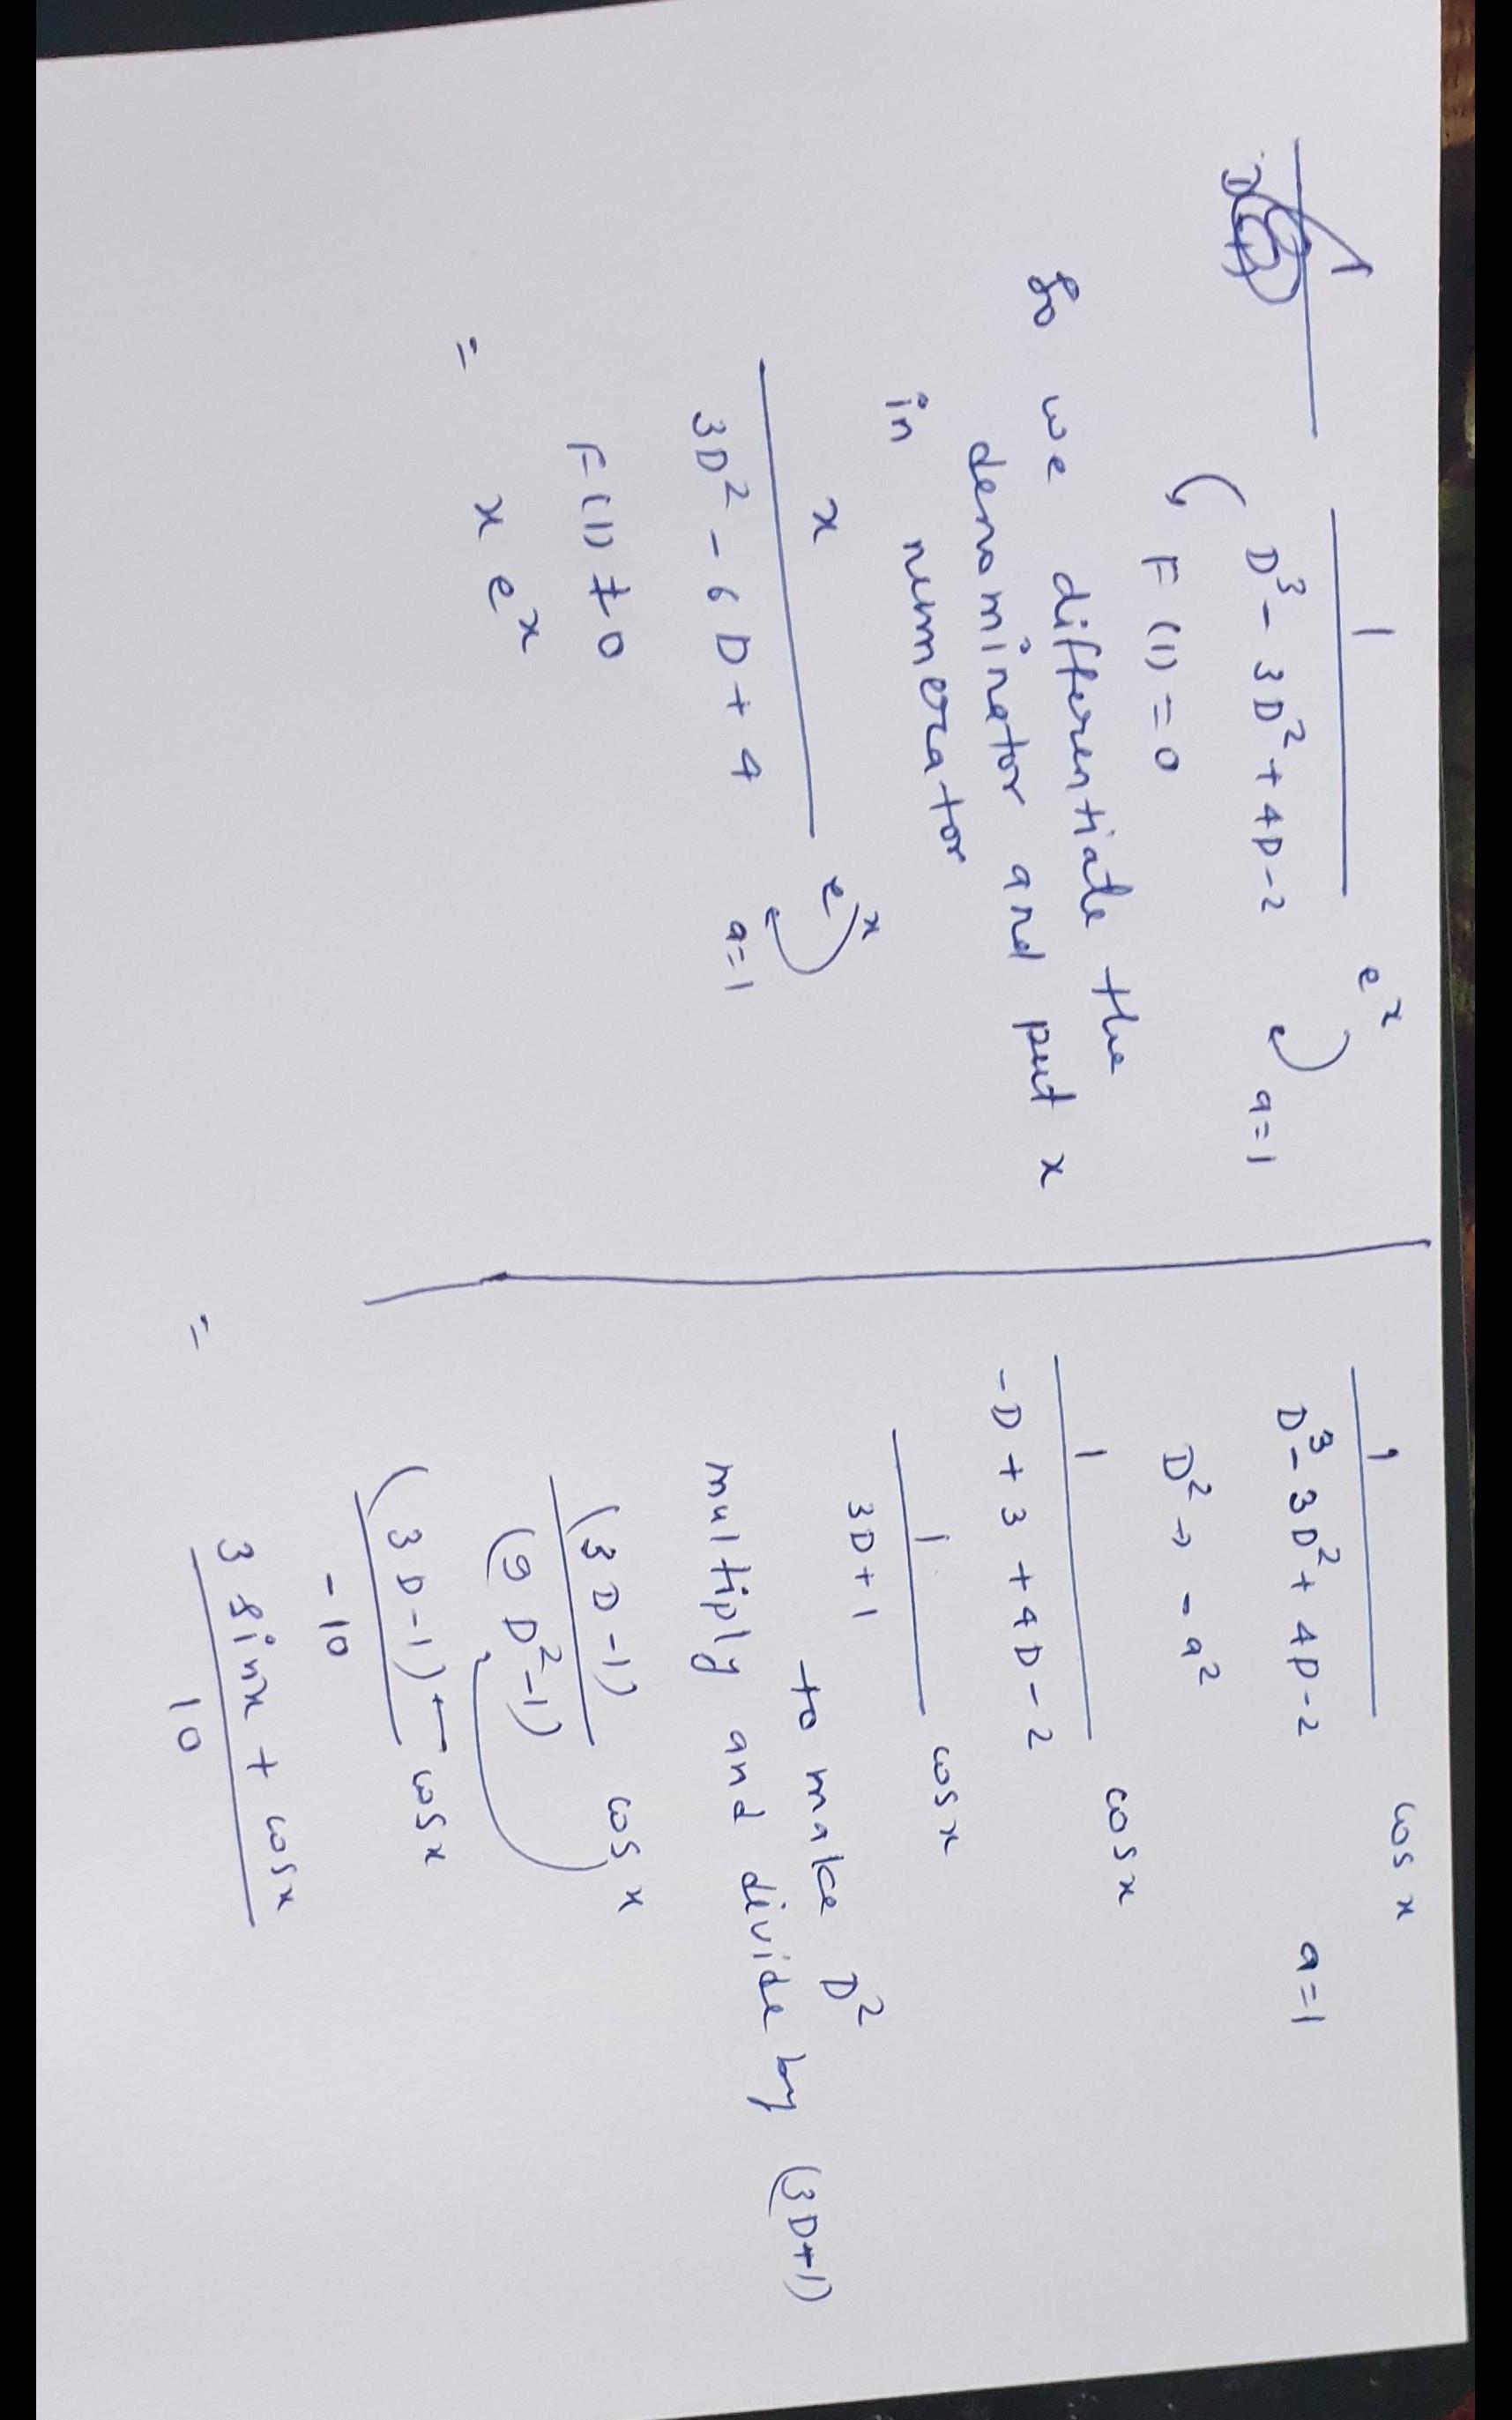 1
D³ - 3D² + 4D - 2
eˣ
a = 1
F(1) = 0
So we differentiate the
denominator and put x
in numerator
x
3D² - 6D + 4
eˣ
a = 1
F(1) ≠ 0
= x eˣ
1
D³ - 3D² + 4D - 2
cos x
a = 1
D² → - a²
1
-D + 3 + 4D - 2
cos x
1
3D + 1
cos x
to make D²
multiply and divide by (3D+1)
(3D-1)
(9D²-1)
cos x
(3D-1)
-10
cos x
= 3 sinx + cosx
10